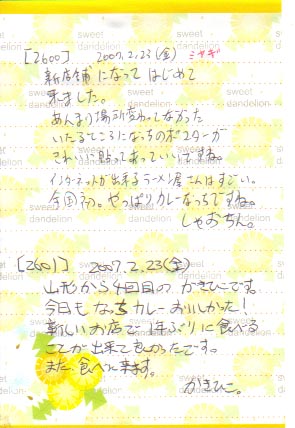 [2600] 2007.2.23(金) ミヤギ
新店舗になってはじめて
来ました。
あんまり場所変わってなかった
いたるところになっちのポスターが
きれいに貼ってあっていいですね。
インターネットが出来るラーメン屋さんはすごい。
全国初。やっぱりカレーなっちですね。
しゃおちん。
[2601] 2007.2.23(金)
山形から4回目のかきひこです。
今日もなっちカレーおいしかった!
新しいお店で1年ぶりに食べる
ことが出来て良かったです。
また食べに来ます。
かきひこ。
sweet dandelion